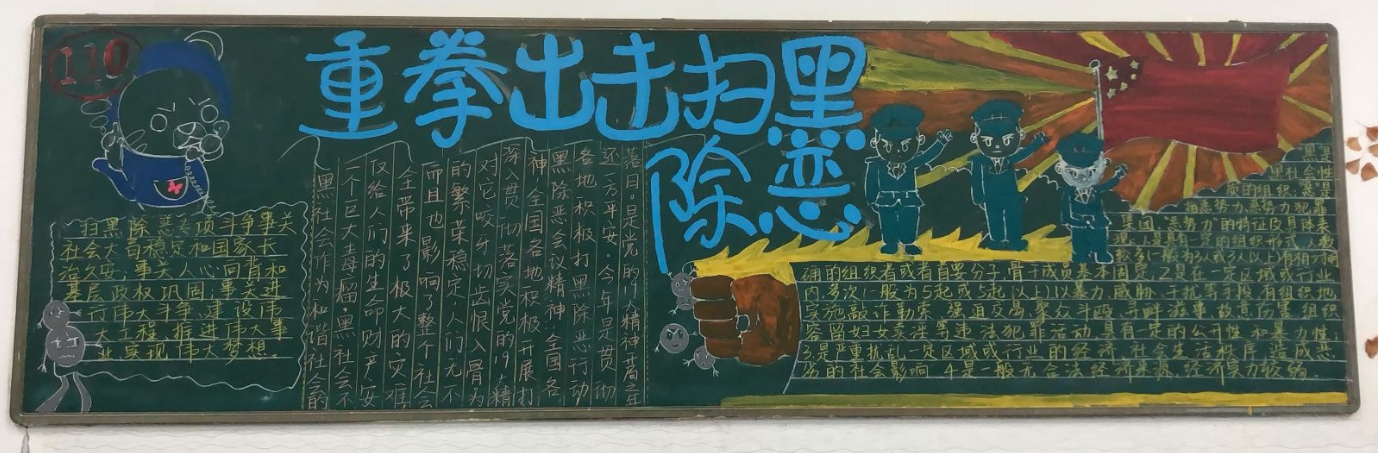 110
重拳出击扫黑
除恶
扫黑除恶专项斗争事关
社会大局稳定和国家长
治久安,事关人心向背和
基层政权巩固,事关进
行伟大斗争、建设伟
大工程、推进伟大事
业、实现伟大梦想。
黑社会作为和谐社会的
一个巨大毒瘤。黑社会不
仅给人们的生命财产安
全带来了极大的灾难
而且也影响了整个社会
的繁荣稳定人们无不
对它咬牙切齿恨入骨为
深入贯彻落实党的19精
神全国各地积极开展打
黑除恶会议精神,全国各
各地积极打黑除恶行动
还一方平安。今年是贯彻
落目。是党的19大精神
黑社会性
质的组织
恶势力
恶势力的特征及具体表
现:1.是具有一定的组织形式
一般为3人或3人以上有相对明
确的组织者或者首要分子,骨干成员基本固定。2.是在一定区域或行业
内,多次(一般为5起或5起以上)以暴力、威胁、干扰等手段,有组织地
实施敲诈勒索、强迫交易、聚众斗殴、寻衅滋事、故意伤害、组织
容留妇女卖淫等违法犯罪活动,具有一定的公开性和暴力性
3.是严重扰乱一定区域或行业的经济、社会生活秩序,造成恶
劣的社会影响 4.是一般无合法经济来源,经济实力较弱。